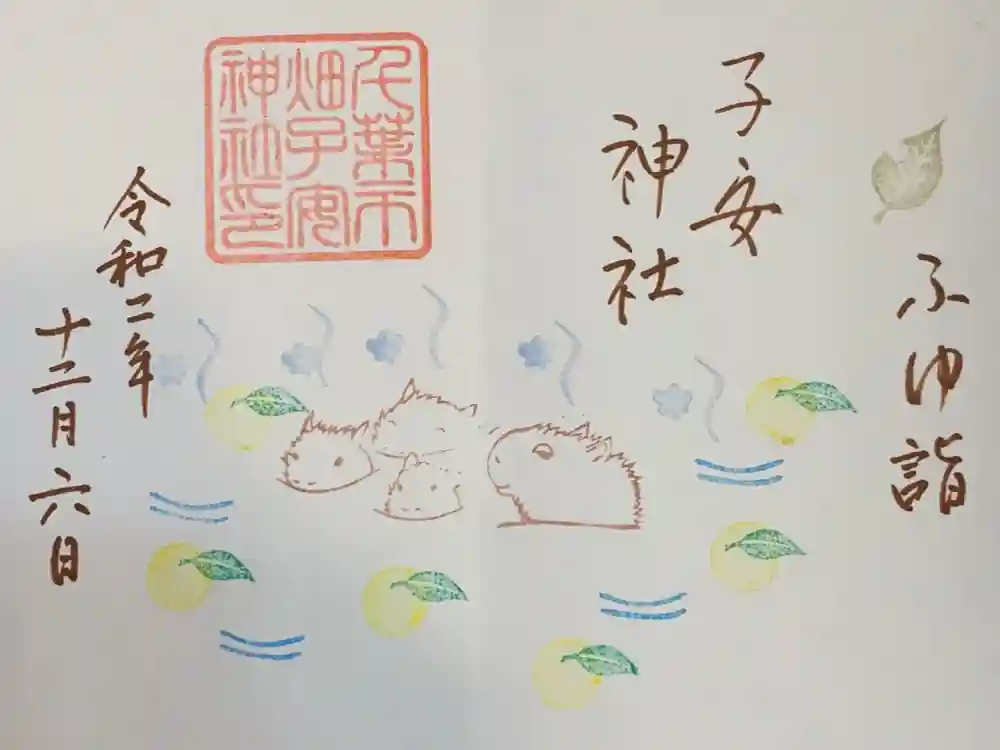 ふゆ詣
子安
神社
千葉市
畑子安
神社印
令和二年
十二月六日